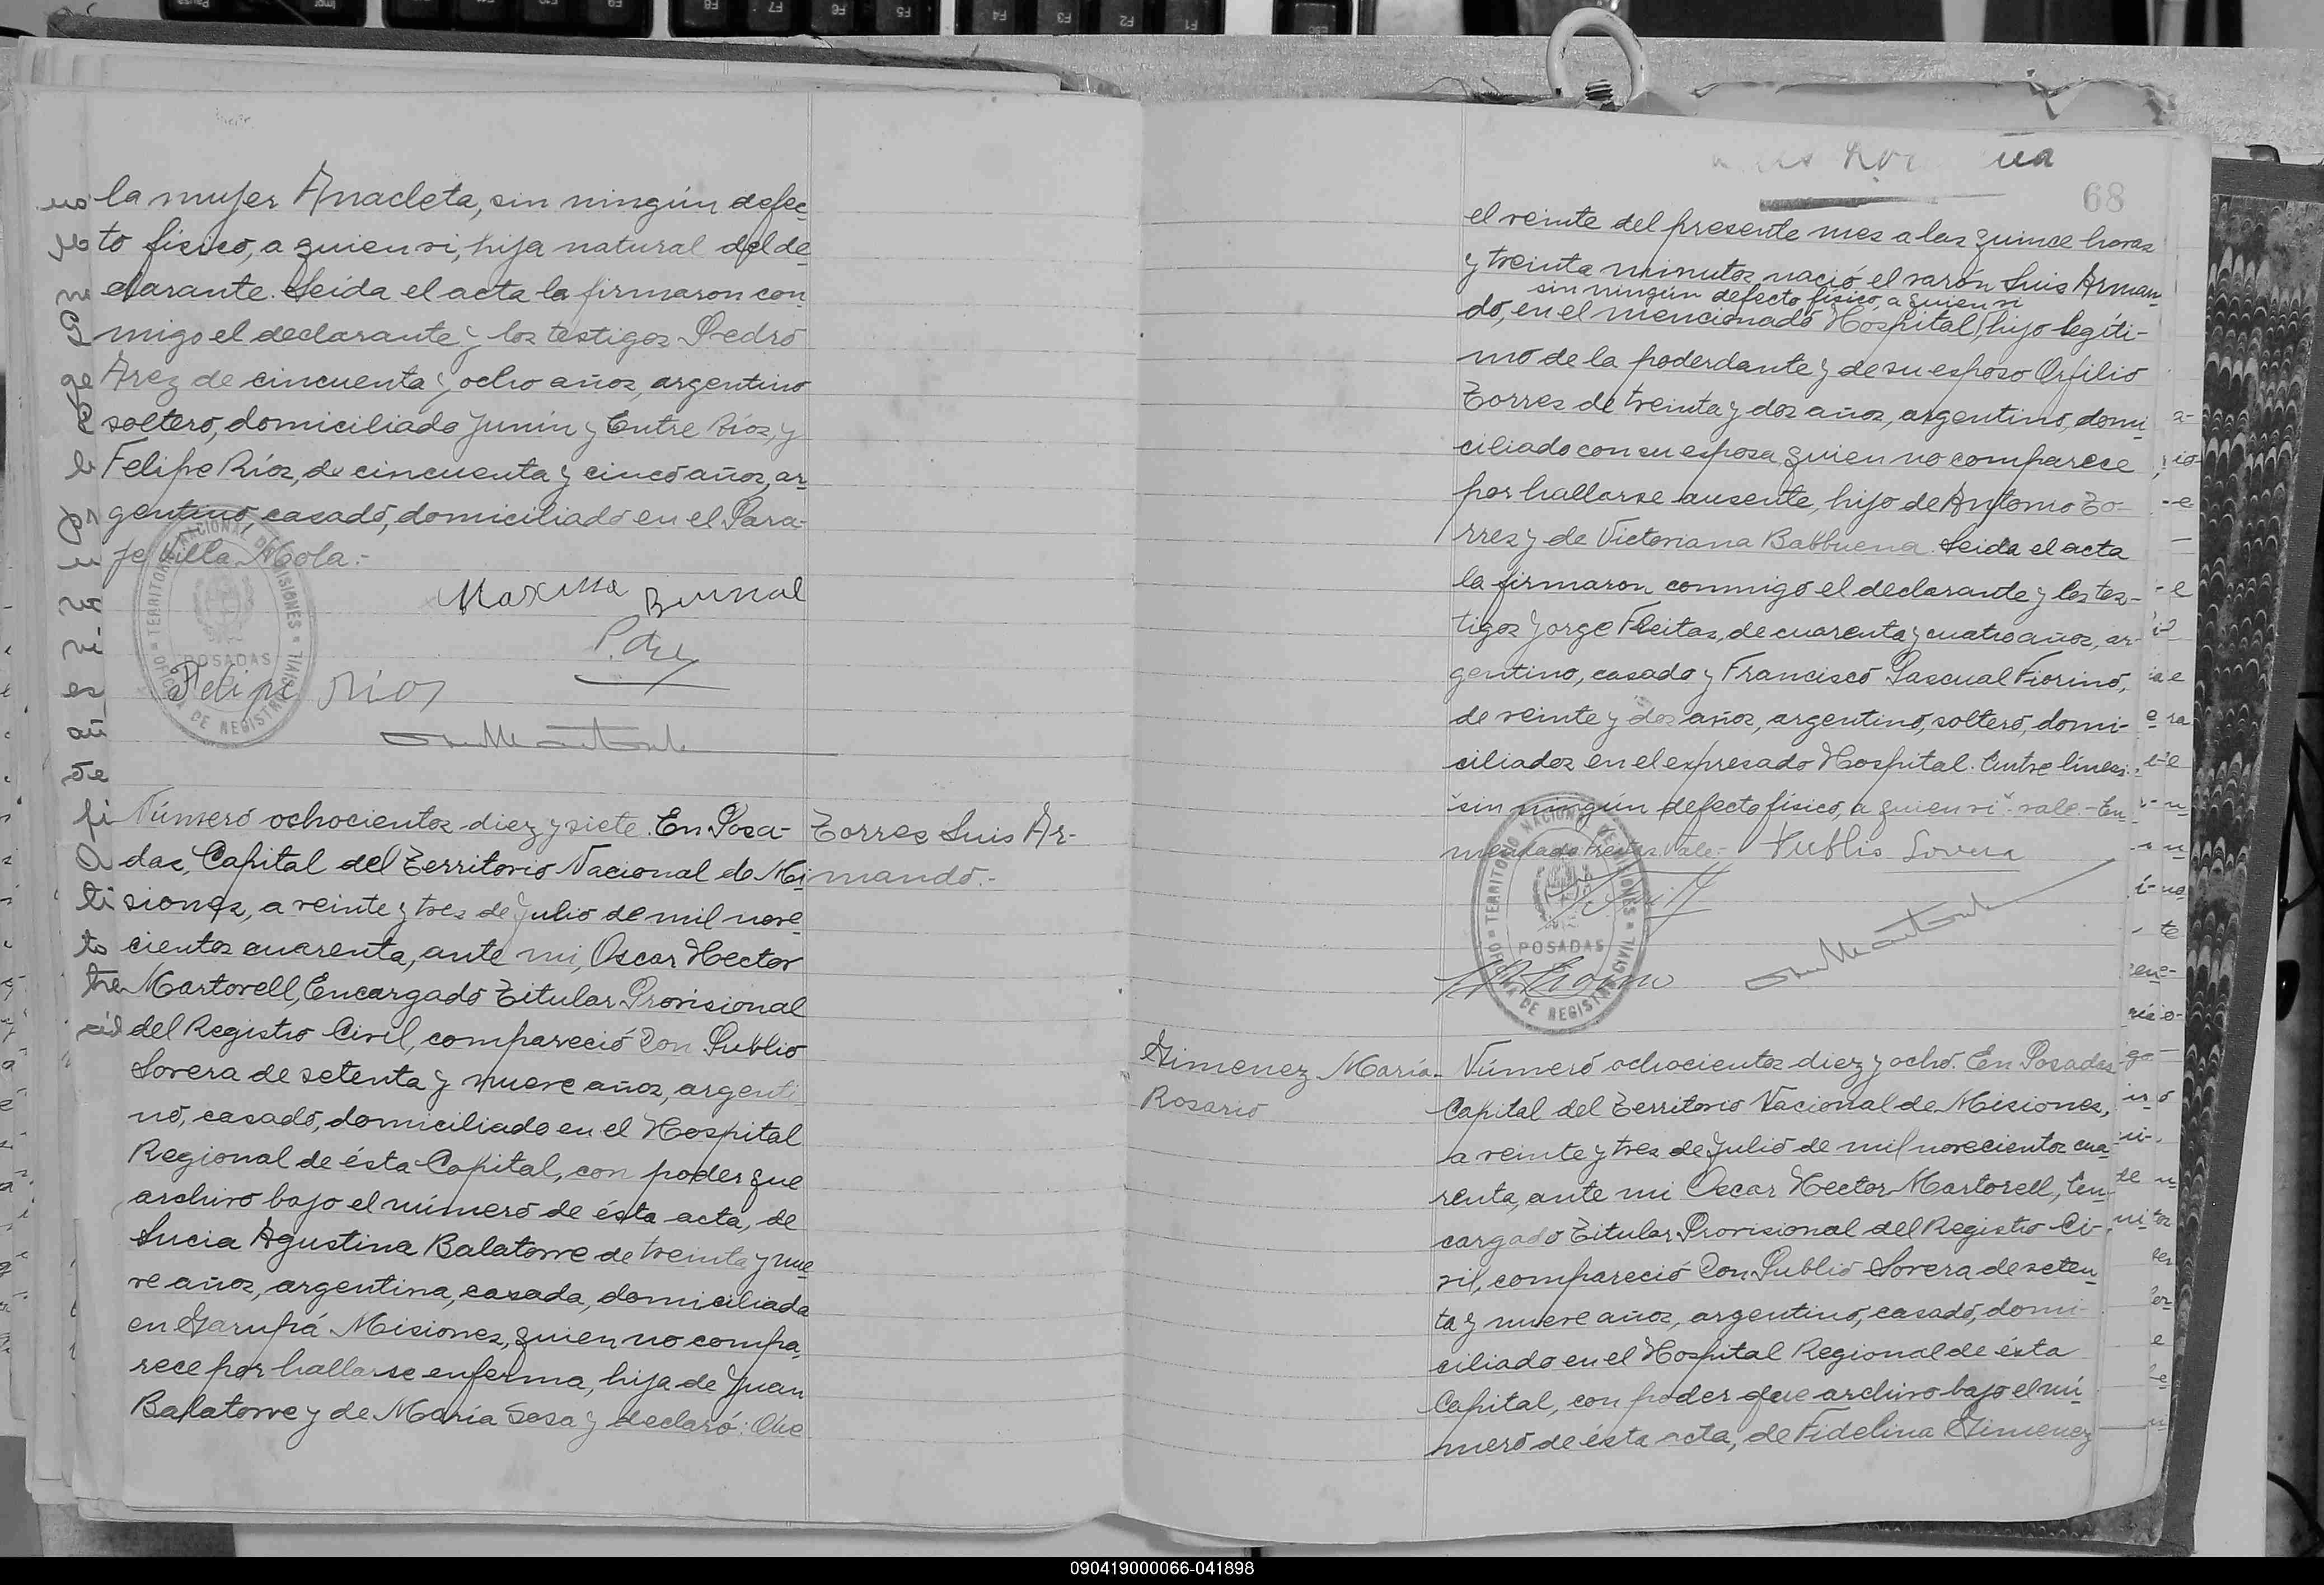 la mujer Anacleta, sin ningún defec-
to físico, a quien vi, hija natural del de-
clarante. Leída el acta la firmaron con-
migo el declarante y los testigos Pedro
Arez de cincuenta y ocho años, argentino
soltero, domiciliado Junín y Entre Ríos, y
Felipe Ríos, de cincuenta y cinco años, ar-
gentino, casado, domiciliado en el Para-
je Villa Mola.-
Felipe Rios
TERRITORIO NACIONAL DE MISIONES
POSADAS
OFICINA DE REGISTRO CIVIL
Número ochocientos diez y siete. En Posa-
das, Capital del Territorio Nacional de Mi-
siones, a veinte y tres de Julio de mil nove
cientos cuarenta, ante mi, Oscar Hector
Martorell, Encargado Titular Provisional
del Registro Civil, compareció Don Publio
Lovera de setenta y nueve años, argenti-
no, casado, domiciliado en el Hospital
Regional de ésta Capital, con poder que
archivo bajo el número de ésta acta, de
Lucia Agustina Balatorre de treinta y nue-
ve años, argentina, casada, domiciliada
en Garupá Misiones, quien no compa-
rece por hallarse enferma, hija de Juan
Balatorre y de María Sosa y declaró: Que
Torres Luis Ar-
mando.-
68
el veinte del presente mes a las quince horas
y treinta minutos nació el varón Luis Arman-
sin ningún defecto físico, a quien vi
do, en el mencionado Hospital, hijo legíti-
mo de la poderdante y de su esposo Orfilio
Torres de treinta y dos años, argentino, domi-
ciliado con su esposa, quien no comparece
por hallarse ausente, hijo de Antonio To-
rres y de Victoriana Babbuena. Leida el acta
la firmaron conmigo el declarante y los tes-
tigos Jorge Fleitas, de cuarenta y cuatro años, ar-
gentino, casado y Francisco Pascual Fiorino,
de veinte y dos años, argentino, soltero, domi-
ciliados en el expresado Hospital. Entre lineas:
"sin ningún defecto físico, a quien vi" vale.- En-
mendado: Vale.- Publio Lovera
TERRITORIO NACIONAL DE MISIONES
POSADAS
OFICINA DE REGISTRO CIVIL
Gimenez María
Rosario
Número ochocientos diez y ocho. En Posadas
Capital del Territorio Nacional de Misiones,
a veinte y tres de Julio de mil novecientos cua-
renta, ante mi Oscar Hector Martorell, En-
cargado Titular Provisional del Registro Ci-
vil, compareció Don Publio Lovera de seten-
ta y nueve años, argentino, casado, domi-
ciliado en el Hospital Regional de ésta
Capital, con poder que archivo bajo el nú-
mero de ésta acta, de Fidelina Gimenez
090419000066-041898